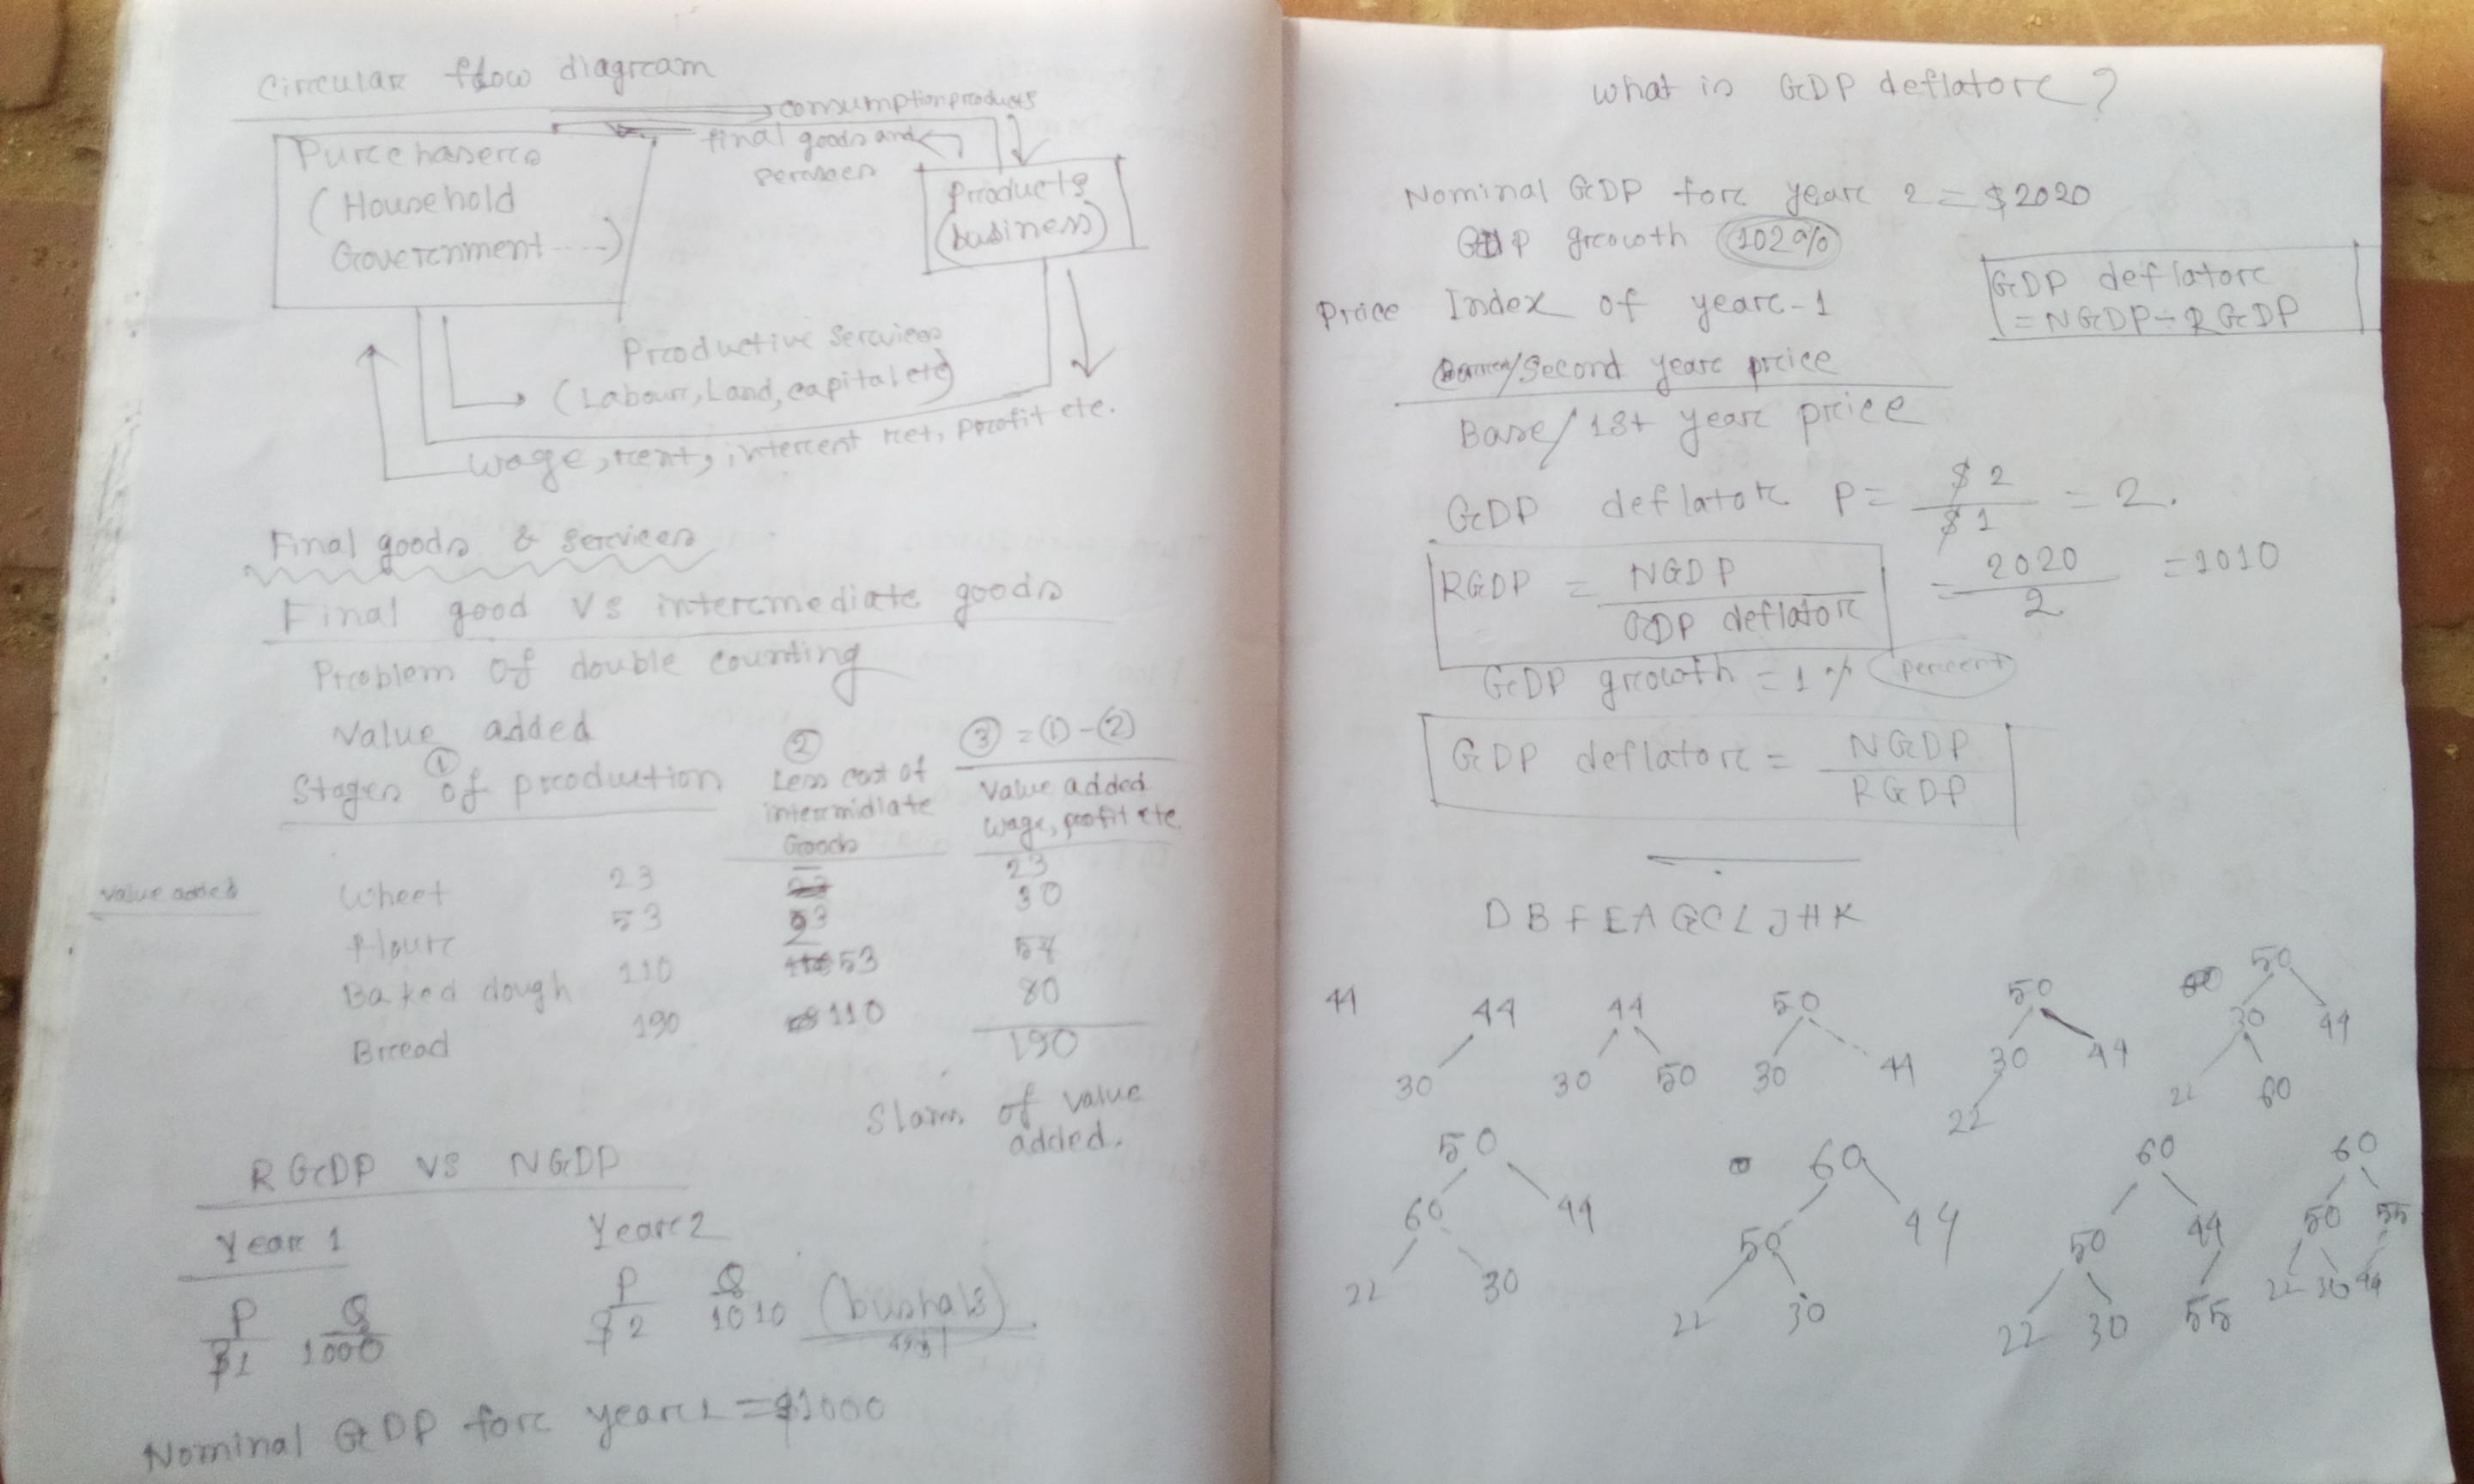 Circular flow diagram
consumption products
final goods and
Purchasers
(Household
Government ....)
Products
(business)
Productive Services
(Labour, Land, capital etc)
wage, rent, profit etc.
Final goods & services
Final good VS intermediate goods
Problem of double counting
Value added
① ② ③ = ① - ②
Stages of production
Less cost of
intermidiate
Goods
Value added
wage, profit etc
value added
Wheet 23 23
Flour 53 23 30
Baked dough 110 53 57
Bread 190 110 80
190
of value
added.
RGDP VS NGDP
Year 1 Year 2
P Q P Q
$1 1000 $2 1010 (bushals)
Nominal GDP for year 1 = $1000
What is GDP deflator?
Nominal GDP for year 2 = $2020
GDP growth 102%
GDP deflator
= NGDP - RGDP
Price Index of year-1
/Second year price
Base/1st year price
GDP deflator P = $2 / $1 = 2.
RGDP = NGDP / GDP deflator = 2020 / 2 = 1010
GDP growth = 1% percent
GDP deflator = NGDP / RGDP
D B F E A G C L J H K
44
44
30
44
30 50
50
30 44
50
30 44
22
50
30 44
22 60
50
60 44
22 30
60
50 44
22 30
60
50 44
22 30 55
60
50 55
22 30 44